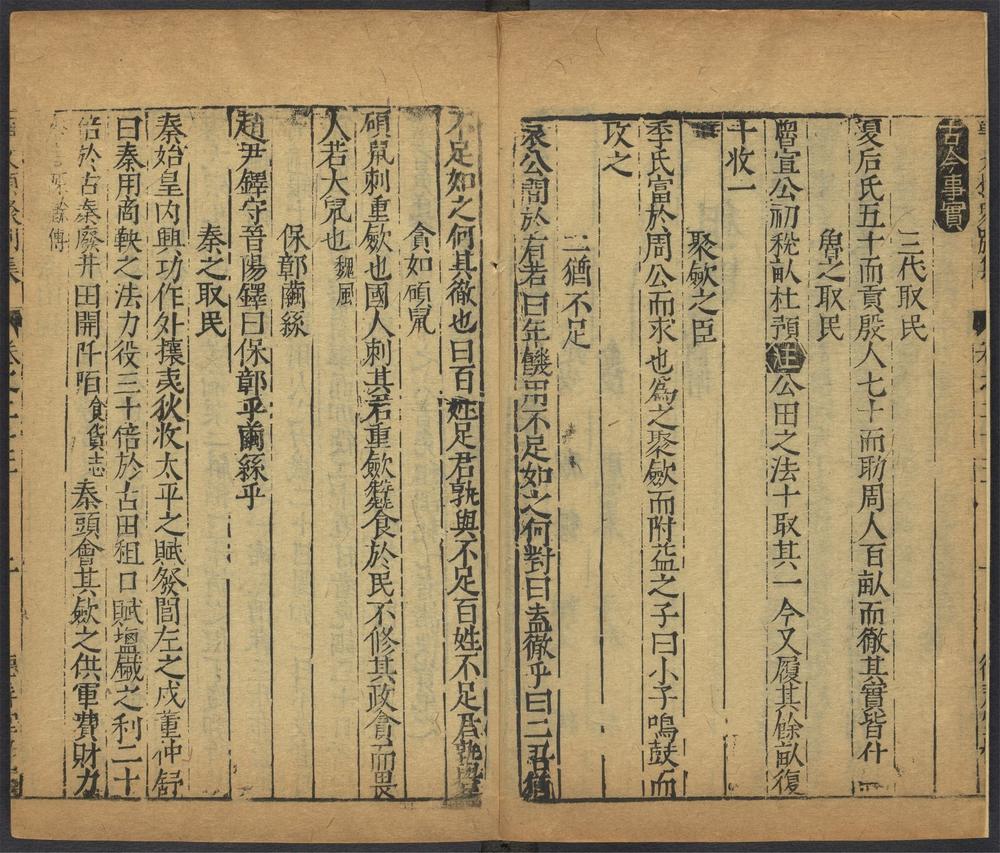 古今事實
三代取民
夏后氏五十而貢殷人七十而耡周人百畝而徹其實皆什
魯之取民
魯宣公初稅畝杜預注公田之法十取其一今又履其餘畝復
十收一
聚歛之臣
季氏富於周公而求也為之聚歛而附益之子曰小子鳴鼓而
攻之
二猶不足
哀公問於有若曰年饑用不足如之何對曰盍徹乎曰二吾猶
不足如之何其徹也曰百姓足君孰與不足百姓不足君孰與
貪如碩鼠
碩鼠刺重歛也國人刺其君重歛蠶食於民不修其政貪而畏
人若大鼠也 魏風
保鄣繭絲
趙尹鐸守晉陽鐸曰保鄣乎繭絲乎
秦之取民
秦始皇内興功作外攘夷狄收太平之賦發閭左之戍董仲舒
曰秦用商鞅之法力役三十倍於古田租口賦塩鐵之利二十
倍於古秦廢井田開阡陌 食貨志 秦頭會箕歛之供軍費財力